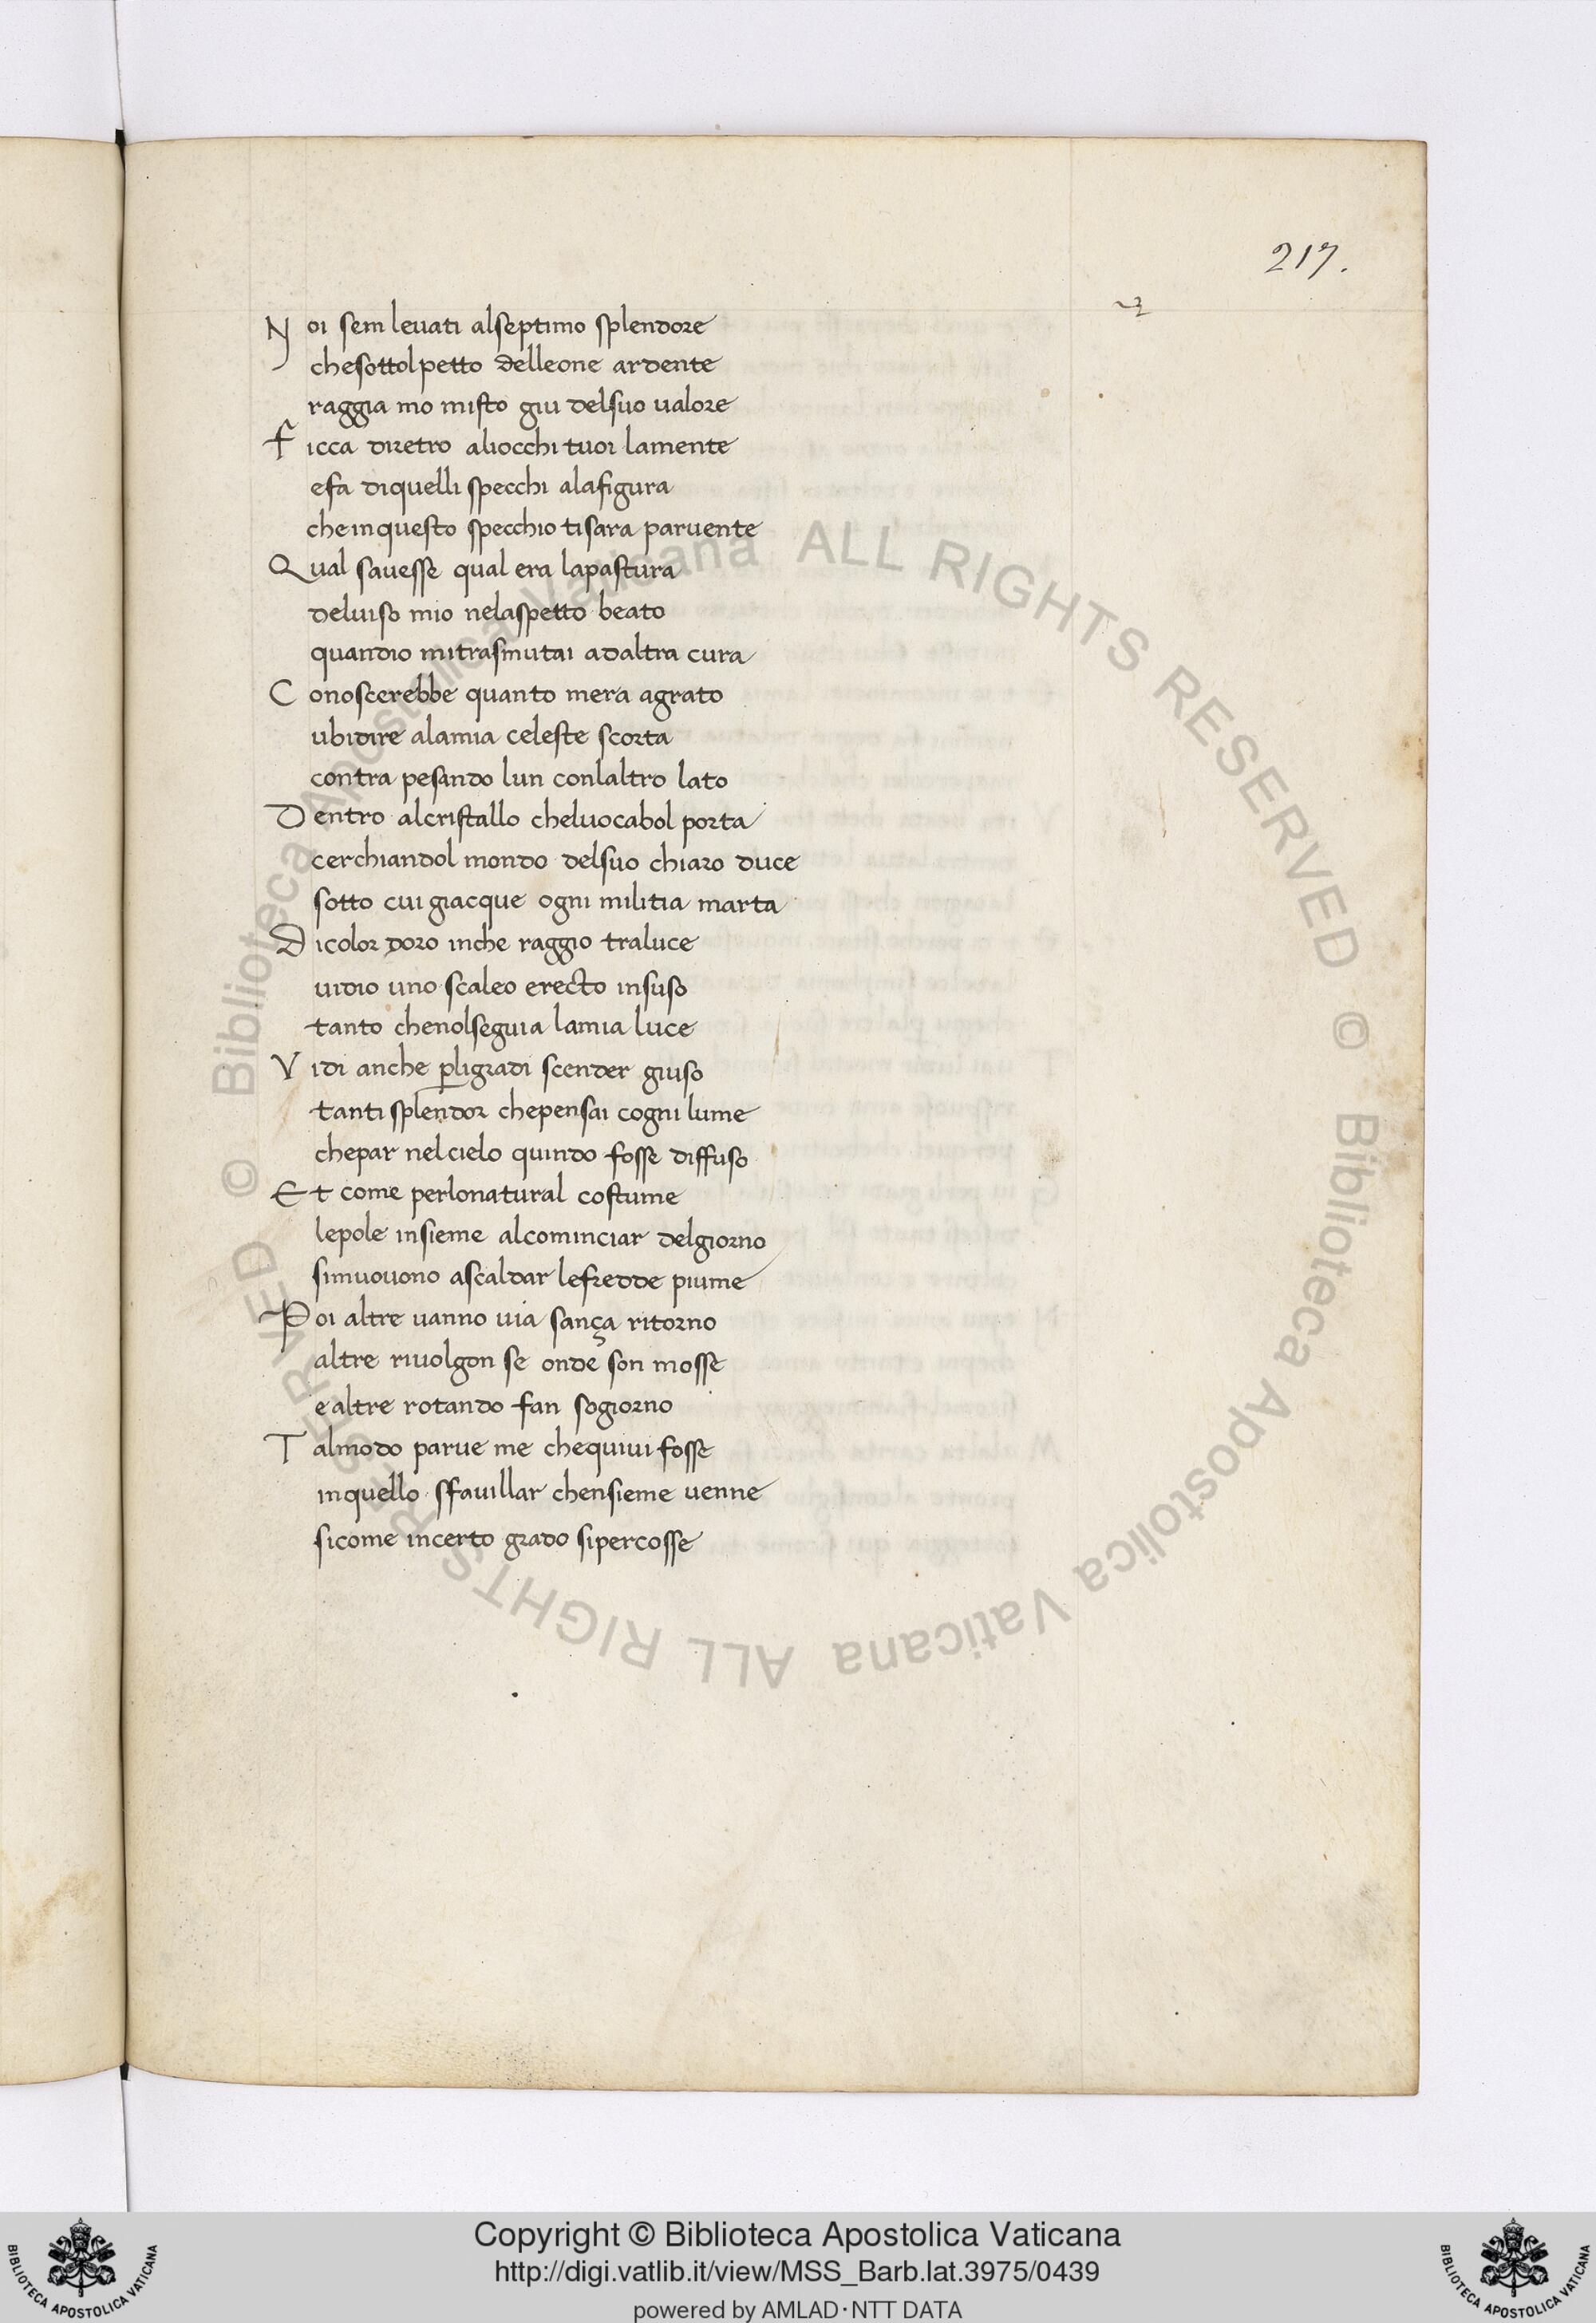 217.
Noi sem leuati alseptimo splendore
chesottolpetto delleone ardente
raggia mo misto giu delsuo ualore
Ficca diretro aliocchi tuoi lamente
efa diquelli specchi alafigura
cheinquesto specchio tisara paruente
Qual sauesse qual era lapastura
deluiso mio nelaspetto beato
quandio mitrasmutai adaltra cura
Conoscerebbe quanto mera agrato
ubidire alamia celeste scorta
contra pesando lun conlaltro lato
Dentro alcristallo cheluocabol porta
cerchiandol mondo delsuo chiaro duce
sotto cui giacque ogni militia marta
Dicolor doro inche raggio traluce
uidio uno scaleo erecto insuso
tanto chenolseguia lamia luce
Vidi anche p̲ligradi scender giuso
tanti splendor chepensai cogni lume
chepar nelcielo quindo fosse diffuso
Et come perlonatural costume
lepole insieme alcominciar delgiorno
simuouono ascaldar lefredde piume
Poi altre uanno uia sança ritorno
altre riuolgon se onde son mosse
e altre rotando fan sogiorno
Talmodo parue me chequiui fosse
inquello sfauillar chensieme uenne
sicome incerto grado sipercosse
© Biblioteca Apostolica Vaticana ALL RIGHTS RESERVED
© Biblioteca Apostolica Vaticana ALL RIGHTS RESERVED
BIBLIOTECA APOSTOLICA VATICANA
Copyright © Biblioteca Apostolica Vaticana
http://digi.vatlib.it/view/MSS_Barb.lat.3975/0439
powered by AMLAD·NTT DATA
BIBLIOTECA APOSTOLICA VATICANA